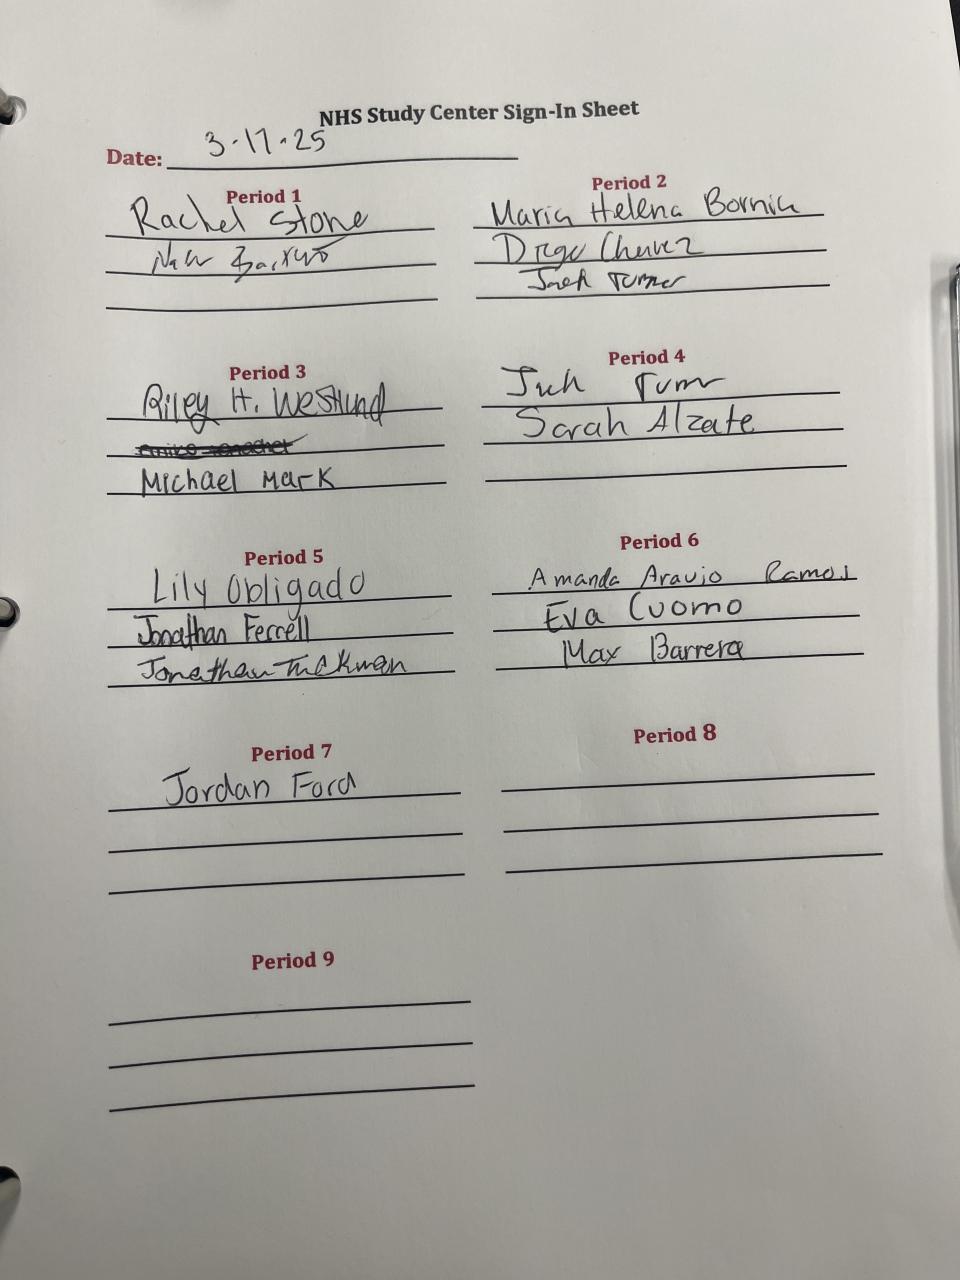 NHS Study Center Sign-In Sheet
Date: 3-17-25
Period 1
Rachel Stone
Period 2
Maria Helena Bornia
Diego Chavez
Jack Turner
Period 3
Riley H. Westlund
Michael Mark
Period 4
Sarah Alzate
Period 5
Lily Obligado
Jonathan Ferrell
Jonathan Tuckman
Period 6
Amanda Araujo Ramos
Eva Cuomo
Max Barrera
Period 7
Jordan Ford
Period 8
Period 9